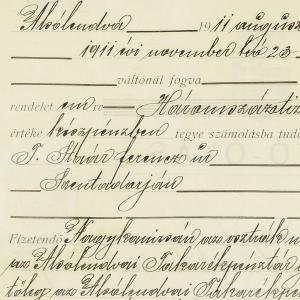 Alsólendva 1911 augusz
1911 évi november hó 23-
váltónál fogva
rendelet em re Háromszáztiz
értéke készpénzben tegye számolásba tudó
T. Stáár Ferencz úr
Szentadorján
Fizetendő Nagykanizsán az osztrák m
az Alsólendvai Takarékpénztár
től az Alsólendvai Takarékpé